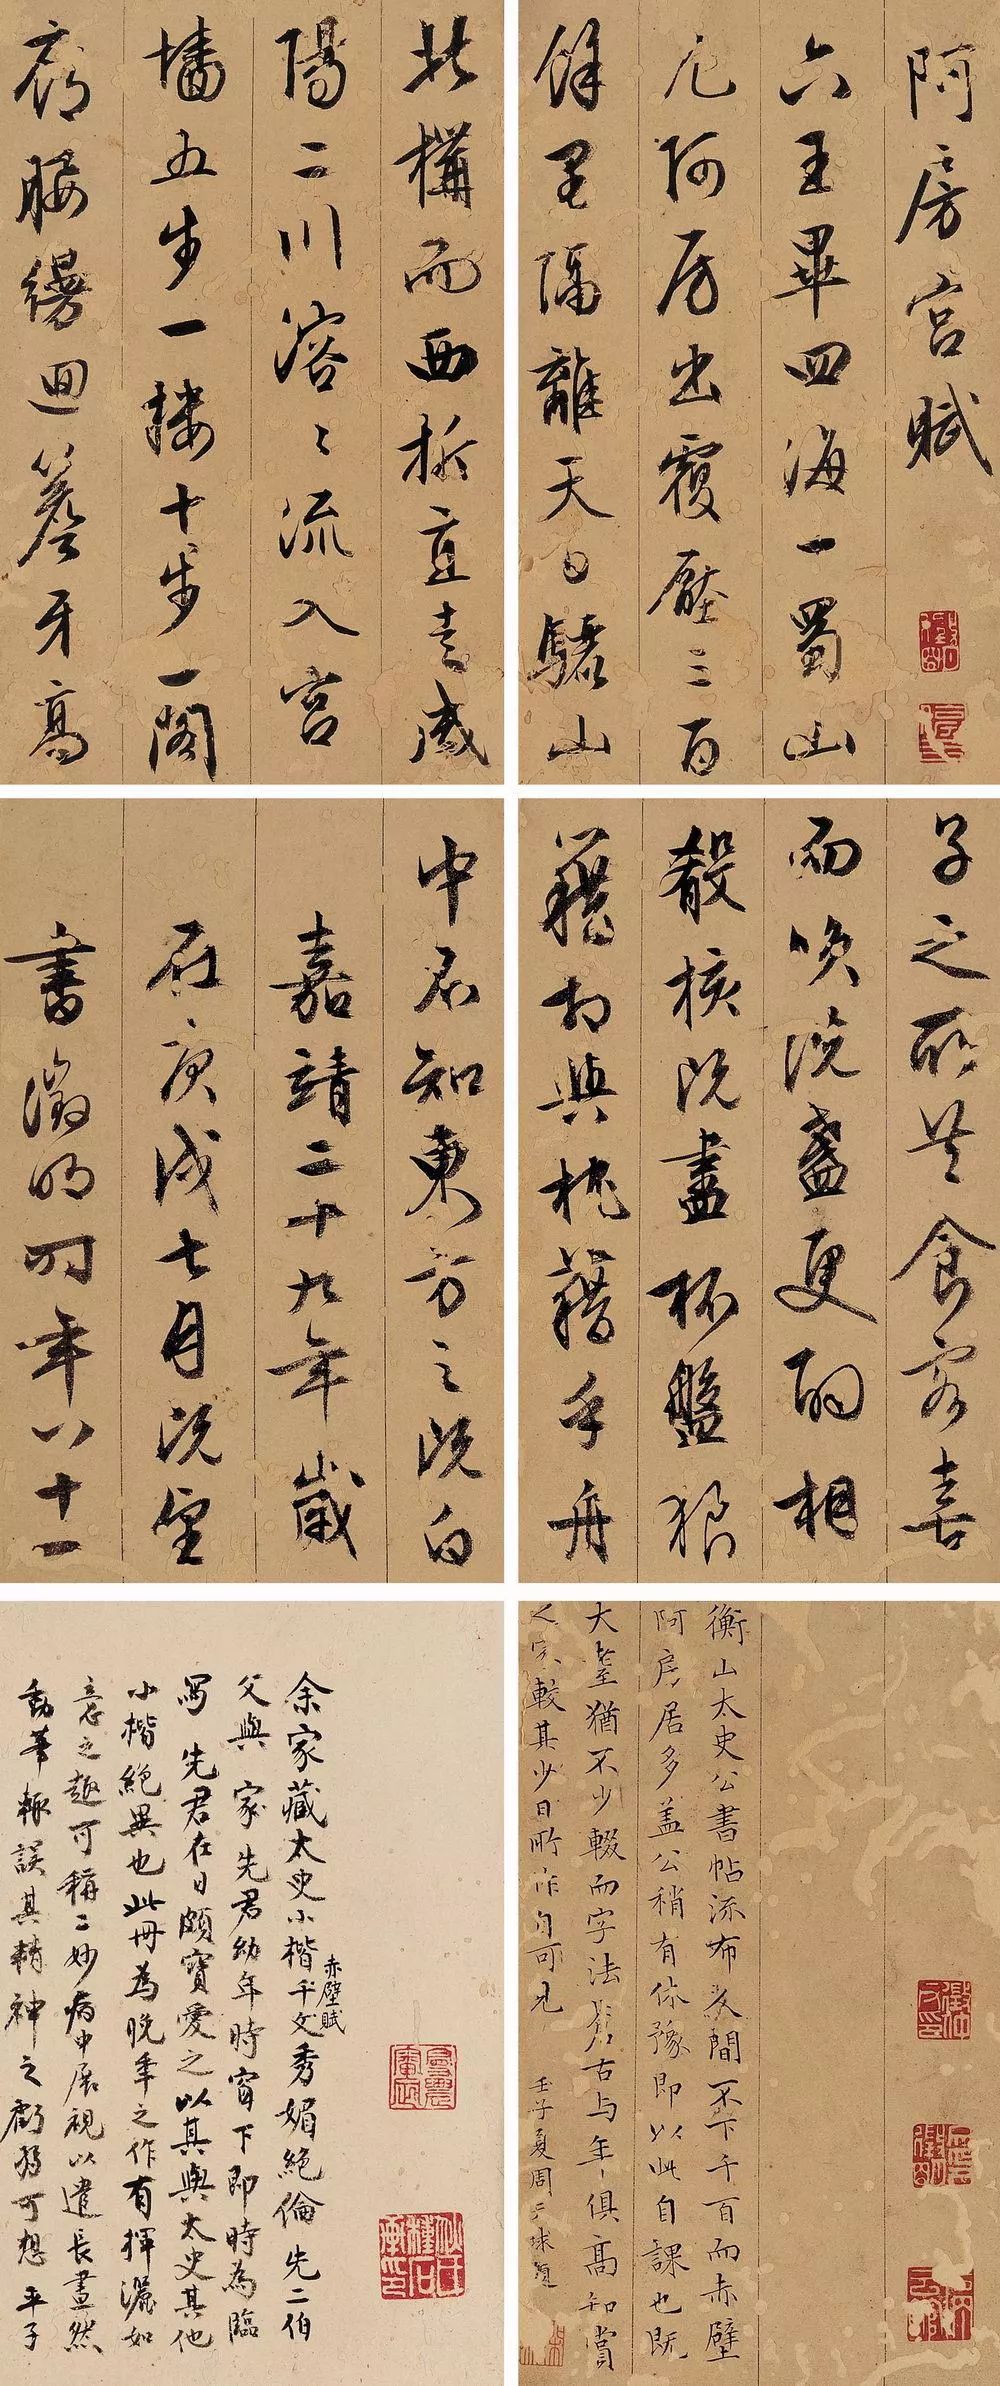 阿房宮賦
六王畢四海一蜀山
兀阿房出覆壓三百
餘里隔離天日驪山
北構而西折直走咸
陽二川溶〻流入宮
墻五步一樓十步一閣
廊腰縵迴簷牙高
子之所共食客喜
而笑洗盞更酌相
殽核既盡杯盤狼
藉相與枕藉乎舟
中不知東方之既白
嘉靖二十九年歲
在庚戌七月既望
書徵明時年八十一
衡山太史公書帖流布人間不下千百而赤壁
阿房居多盖公稍有休豫即以此自課也既
大耋猶不少輟而字法高古与年俱高知賞
之家較其少日所作自可見
壬子夏周天球題
余家藏太史小楷千文秀媚絕倫先二伯
赤壁賦
父與家先君幼年時窗下即時為臨
寫先君在日頗寶愛之以其與太史其他
小楷絕異也此冊為晚年之作有揮灑如
意之趣可稱二妙病中展視以遣長晝然
動筆輒誤其精神之可想平子